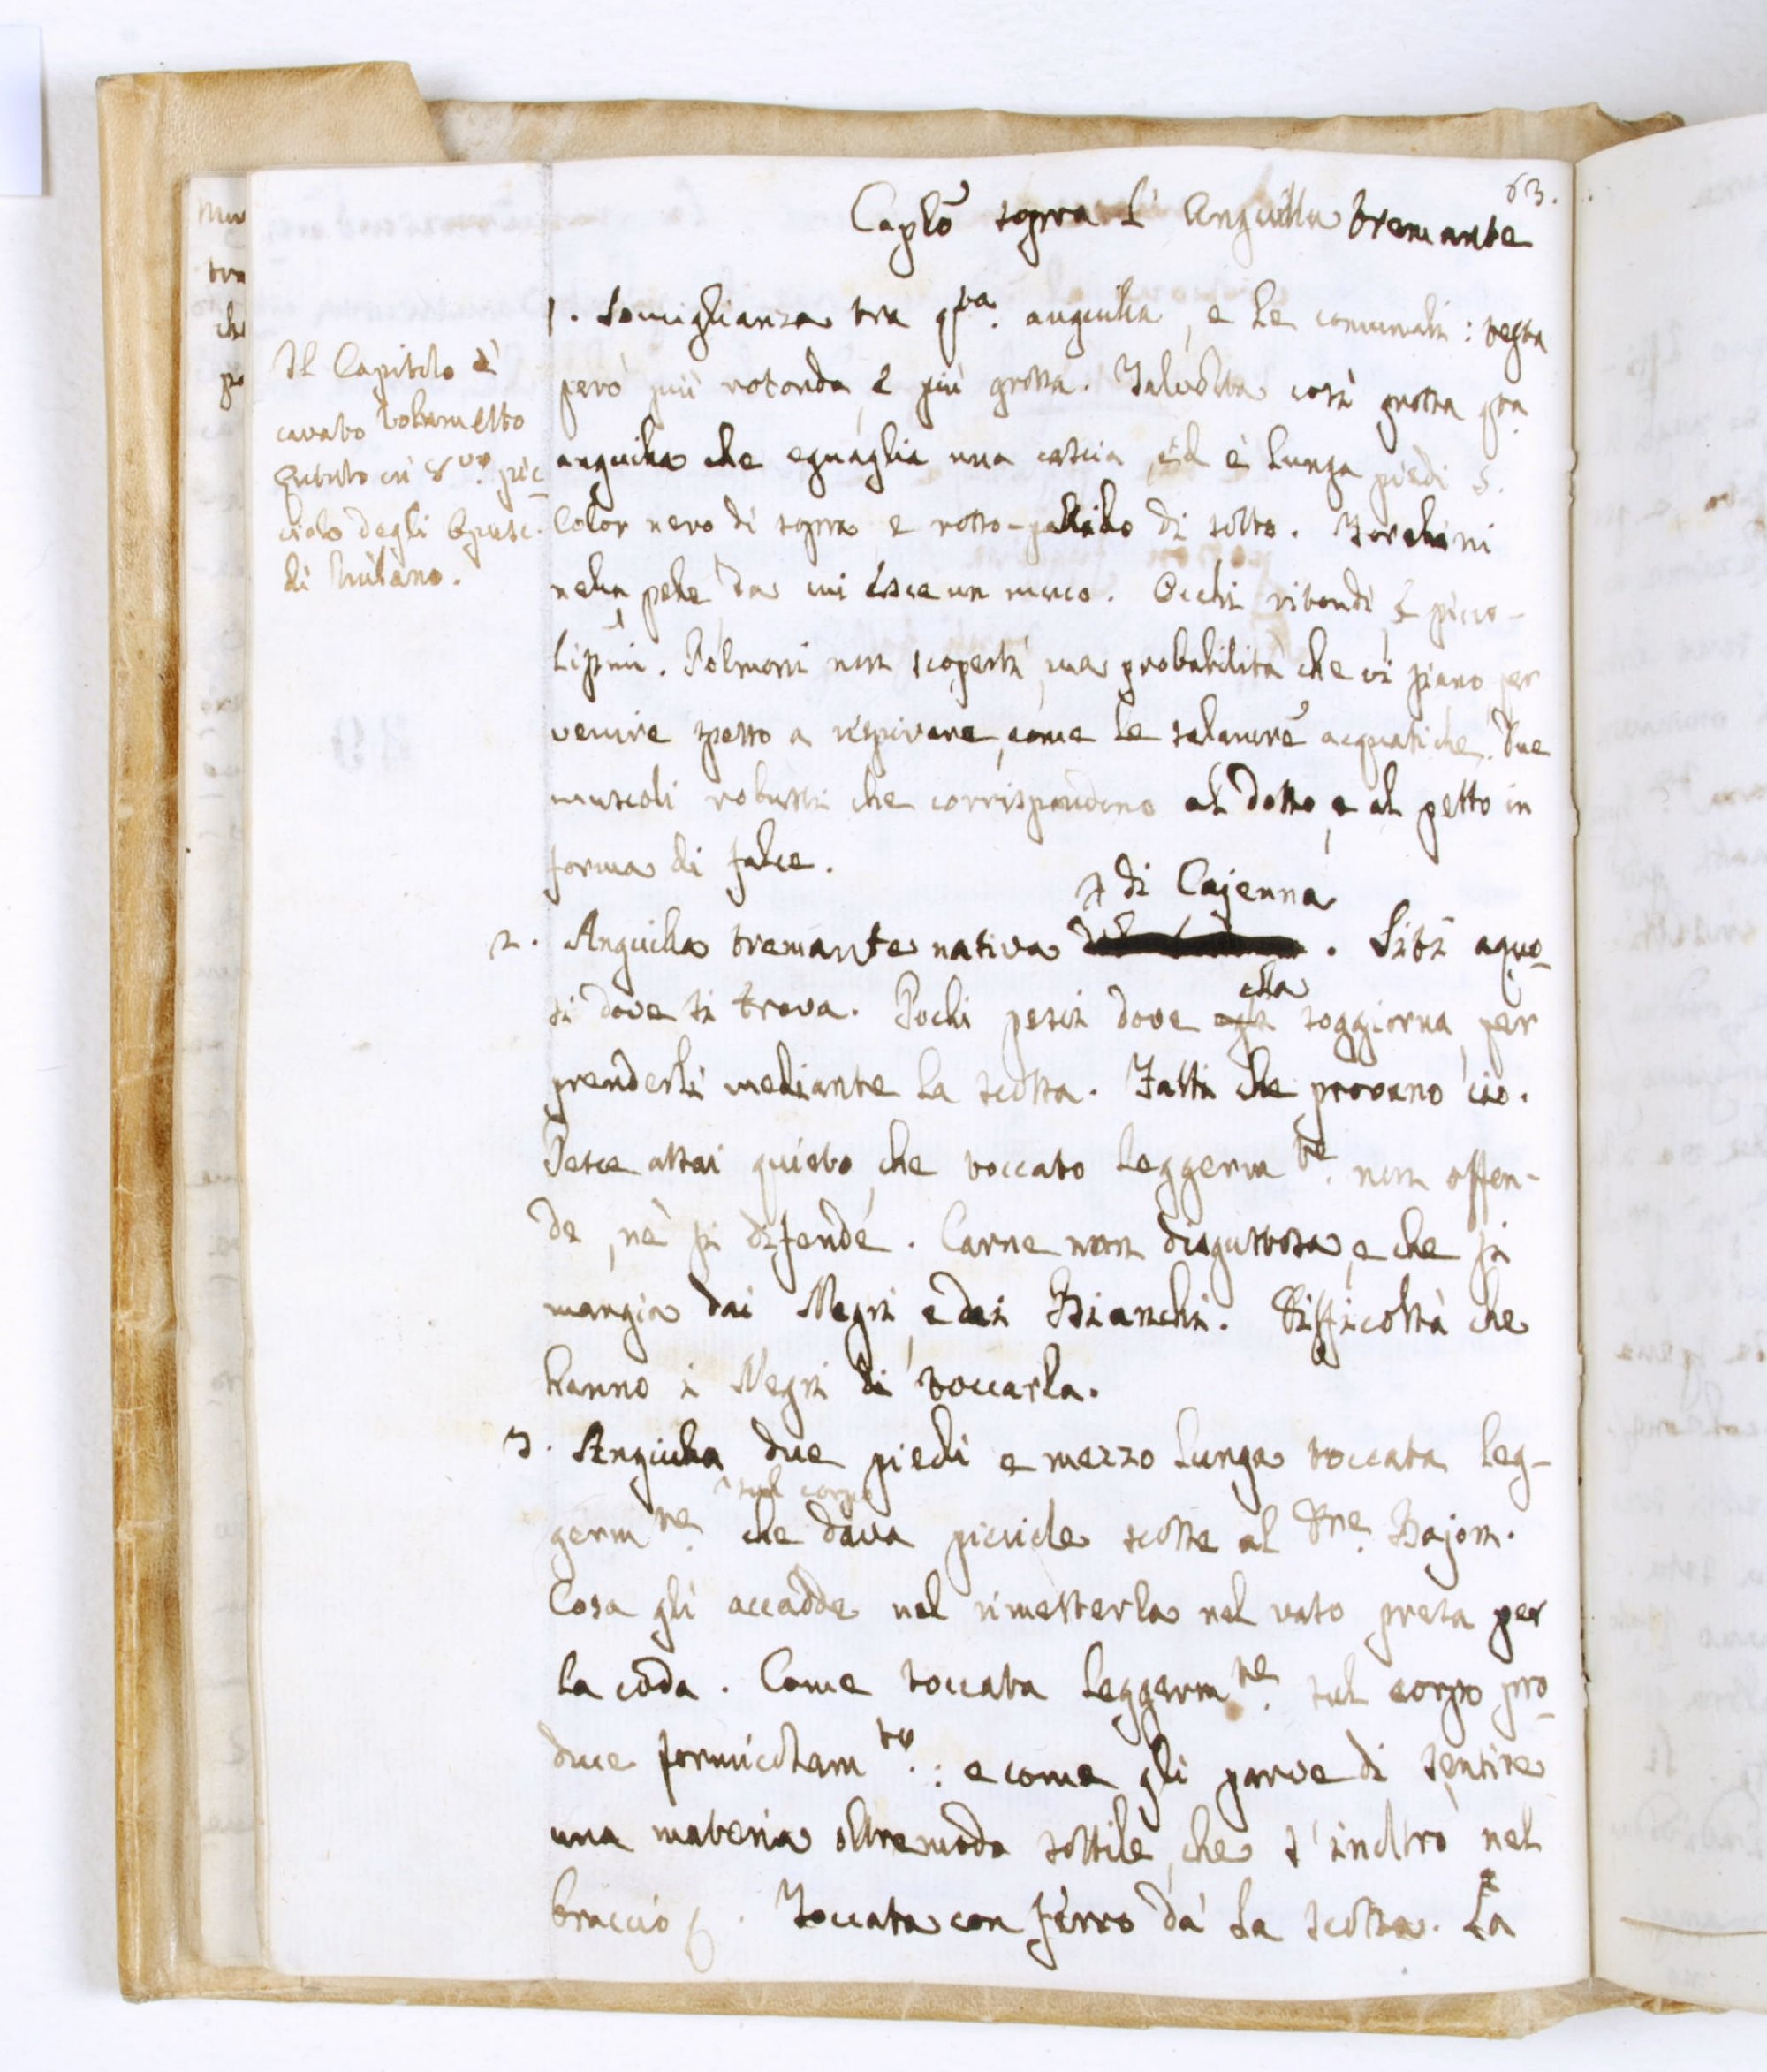 63.
Caplõ sopra l' Anguilla tremante
1. Somiglianza tra qsta. anguilla, e le comunali: testa
però più rotonda, e più grossa. Talvolta così grossa qta
anguilla che eguaglia una coscia, ed è lunga piedi 5.
Color nero di sopra e rosso-pallido di sotto. Forellini
nella pelle, da cui esce un muco. Occhi ritondi, e picco-
lissimi. Polmoni non scoperti, ma probabilità che vi siano per
venire spesso a respirare, come le salamre acquatiche. Due
muscoli robusti che corrispondono al dosso, e al petto in
forma di falce.
Il Capitolo è
cavato
quinto in 8vo. pic-
ciolo degli Opusc.
di Milano.
di Cajenna
2. Anguilla tremante nativa . Siti aquo-
si dove si trova. Pochi pesci dove egli soggiorna, per
ella
prenderli mediante la scossa. Fatti che provano ciò.
Pesce assai quieto, che toccato leggermte. non offen-
de, nè si difende. Carne non disgustosa, e che si
mangia dai Negri, e dai Bianchi. Difficoltà che
hanno i Negri di toccarla.
3. Anguilla due piedi e mezzo lunga toccata leg-
sul corpo
germte. che dava picciole scosse al Sne. Bajon.
Cosa gli accadde nel rimetterla nel vaso presa per
la coda. Come toccata leggermte. sul corpo pro-
duce formicolamto.: e come gli parve di sentire
una materia oltremodo sottile, che s'inoltrò nel
braccio. Toccata con ferro dà la scossa. La